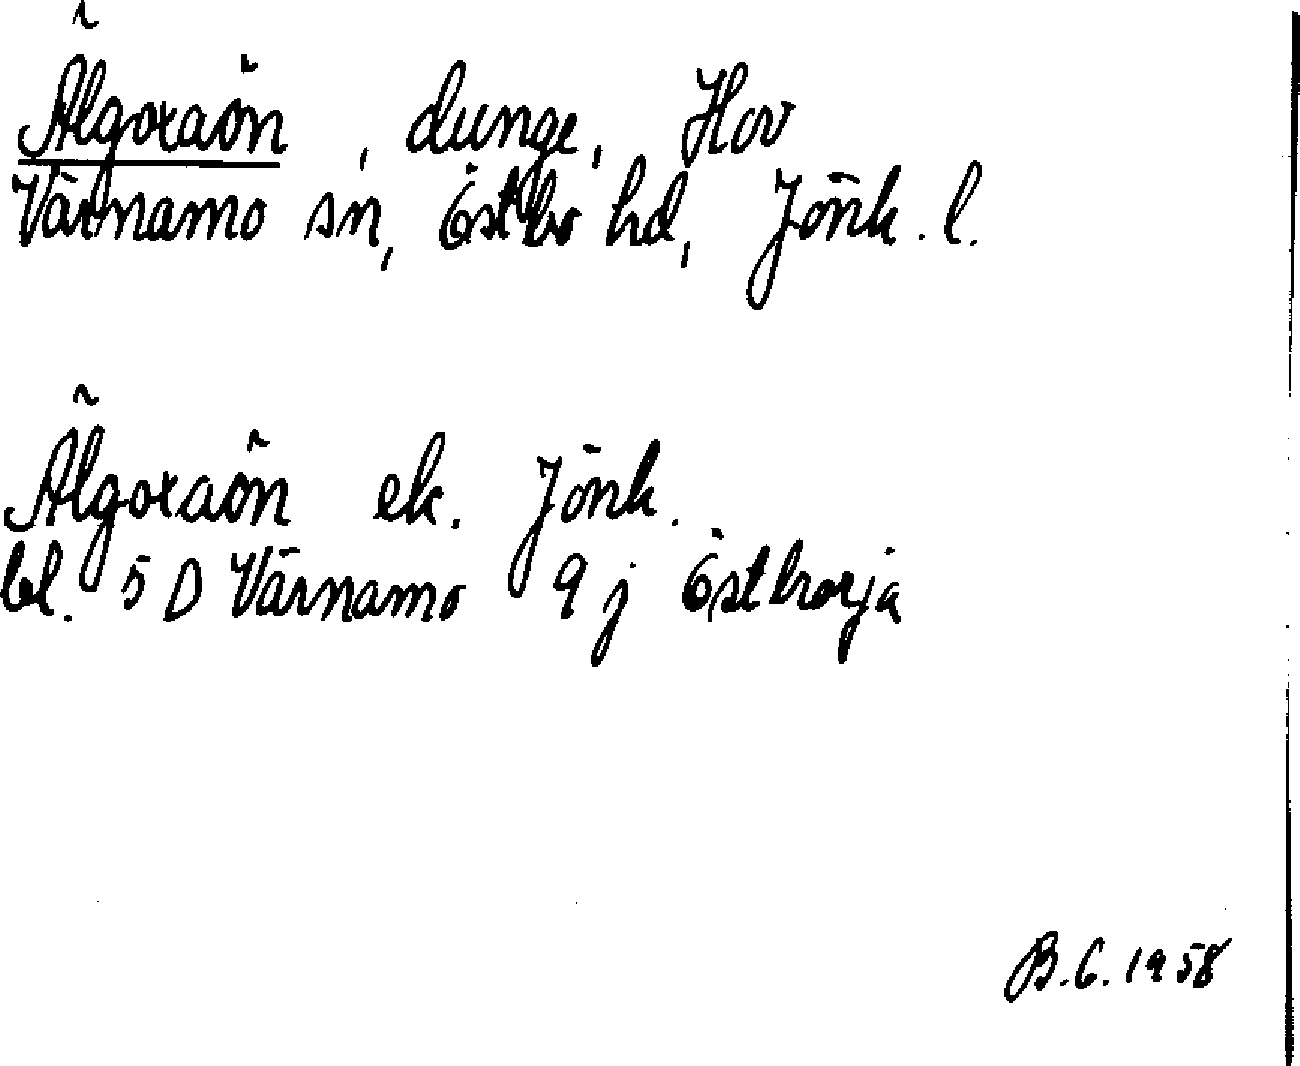 Älgoxaön, dunge, Hov
Värnamo sn, Östbo hd, Jönk. l.
Älgoxaön ek. Jönk.
bl. 5 D Värnamo 9 j Östhorja
B.G. 1958